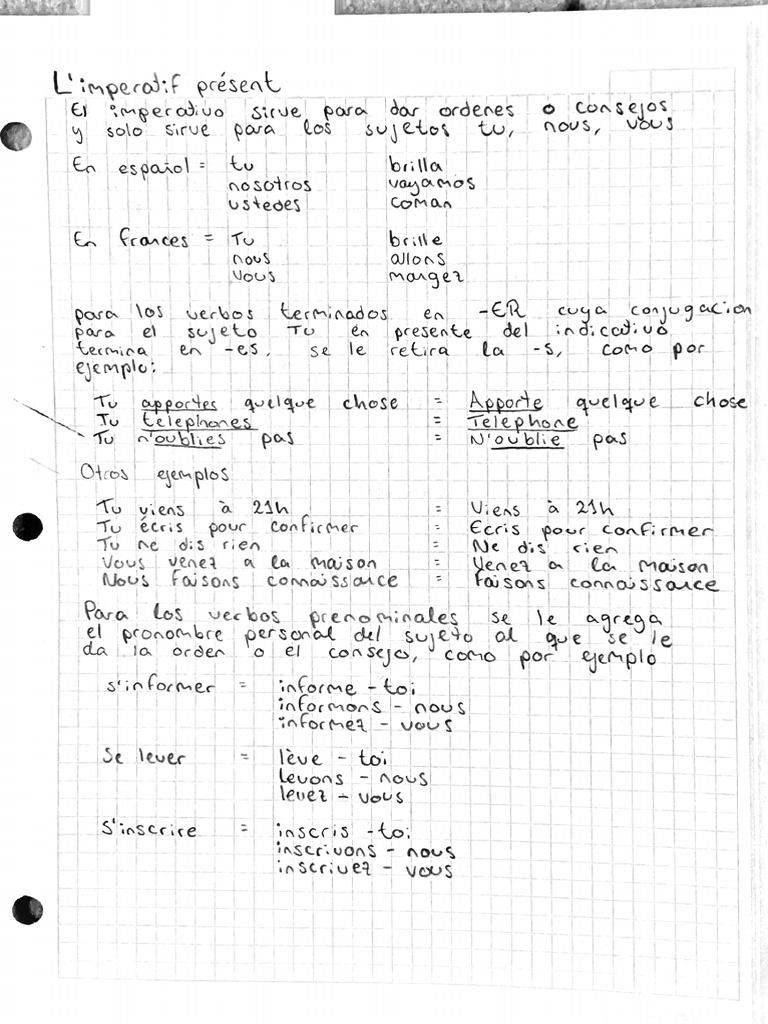 L'imperatif présent
El imperativo sirve para dar ordenes o consejos
y solo sirve para los sujetos tu, nous, vous
En español = tu brilla
nosotros vayamos
ustedes coman
En frances = Tu brille
nous allons
Vous mangez
para los verbos terminados en -ER cuya conjugacion
para el sujeto Tu en presente del indicativo
termina en -es, se le retira la -s, como por
ejemplo:
Tu apportes quelque chose = Apporte quelque chose
Tu telephones = Telephone
Tu n'oublies pas = N'oublie pas
Otros ejemplos
Tu viens à 21h = Viens à 21h
Tu ecris pour confirmer = Ecris pour confirmer
Tu ne dis rien = Ne dis rien
Vous venez a la maison = Venez a la maison
Nous faisons connaissance = Faisons connaissance
Para los verbos prenominales se le agrega
el pronombre personal del sujeto al que se le
da la orden o el consejo, como por ejemplo
s'informer = informe - toi
informons - nous
informez - vous
Se lever = lève - toi
levons - nous
levez - vous
S'inscrire = inscris - toi
inscrivons - nous
inscrivez - vous